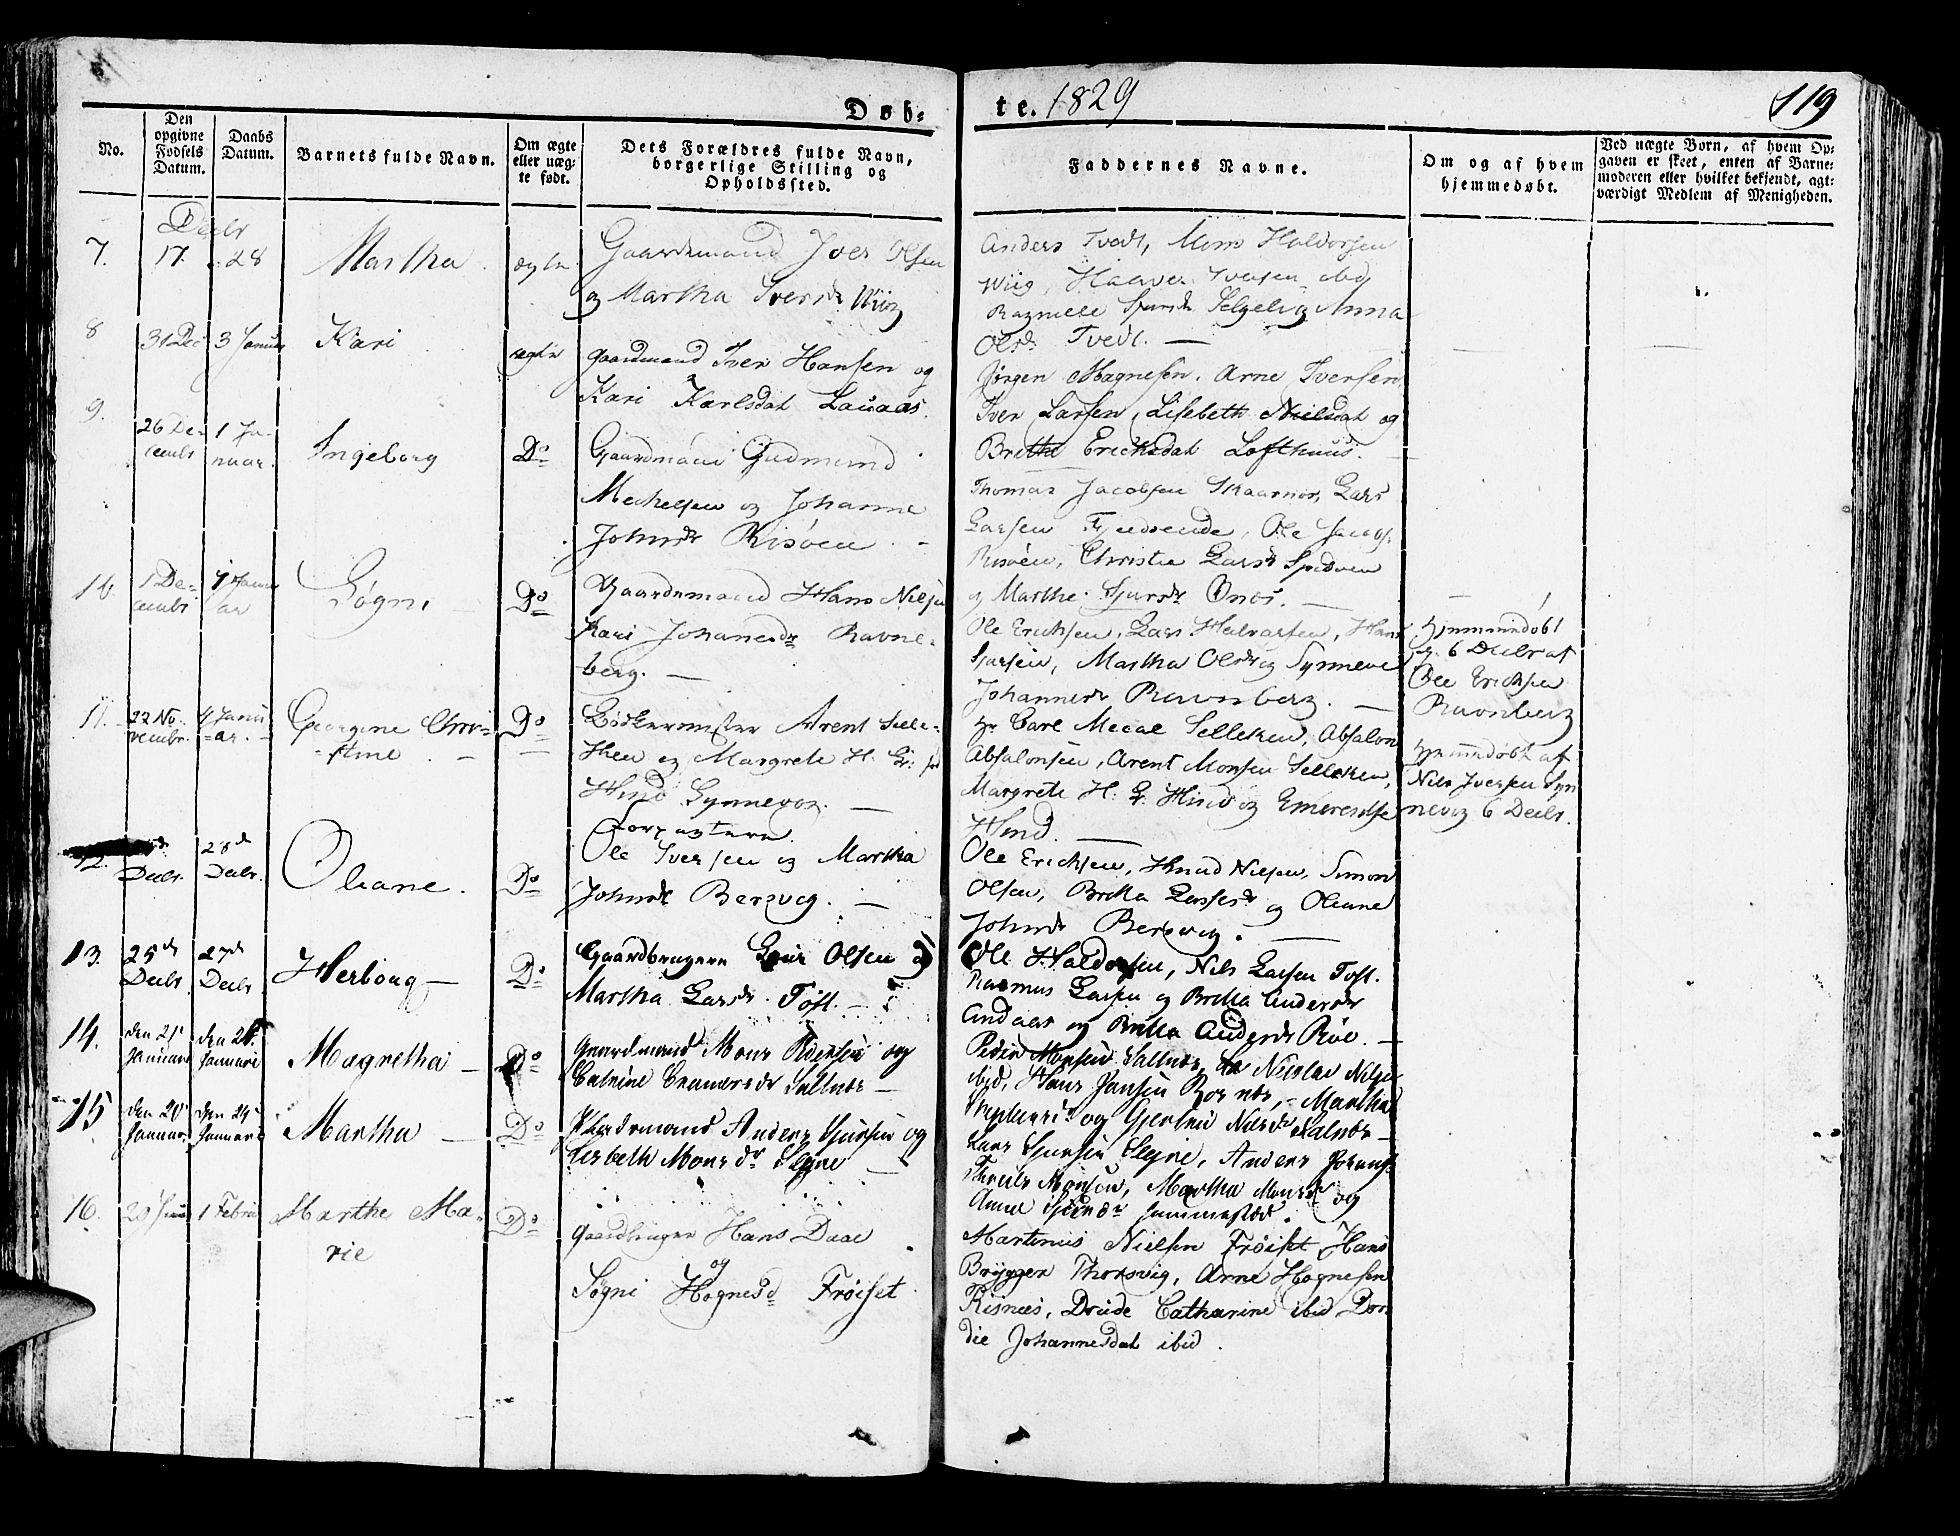 Døb-
te. 1829
119
No.
Den opgivne Fødsels Datum.
Daabs Datum.
Barnets fulde Navn.
Om ægte eller uæg- te født.
Dets Forældres fulde Navn, borgerlige Stilling og Opholdssted.
Faddernes Navne.
Om og af hvem hjemmedøbt.
Ved uægte Børn, af hvem Op- gaven er skeet, enten af Barne- moderen eller hvilket bekjendt, agt- værdigt Medlem af Menigheden.
Decbr
7. 17. 28 Martha ægte
Gaardemand Iver Olsen
og Martha Iversdr Wiig
Anders Tvedt, Mons Haldorsen
Wiig, Haaver Iversen ibid,
Ragnele Sjursdr Selgeli og Anna
Olsdr Tvedt. —
8 31 Dec 3 Januar Kari ægte
Gaardmand Iver Hansen og
Kari Karlsdat Lauaas.
Jørgen Magnesen, Arne Iversen
Iver Larsen, Lisebeth Nielsdat og
Brithe Ericksdat Lofthuus.
9. 26 De- cembr 1 Ja- nuar. Ingeborg Do
Gaardmand Gudmund
Mechelsen og Johanne
Johnsdr Risøen
Thomas Jacobsen Skaarnor, Lars
Larsen Fjedsende, Ole Jacobs.
Risøen, Christie Larsdr
og Marthe Sjursdr Ones. —
10. 1 De- cembr 4 Janu- ar Søgni Do
Gaardemand Hans Nilsen
Kari Johanesdr Ravne-
berg. —
Ole Ericksen, Lars Halvorsen, Hans
Sjursen, Martha Olsdr og Synneve
Johannesdr Ravnberg. —
hjemmedøbt
6 Decbr af
Ole Ericksen
Ravnberg
11. 22 No- vembr. 4 Janu- ar. Georgine Chri- stine Do
Arent Selle-
Hken og Margrete H. G. fød
Hind Synnevog. —
Hr Carl Selleken, Absalon
Absalonsen, Arent Monsen Selleken,
Margrete H. G. Hind og Emerentse
Hind. —
hjemmedøbt af
Nils Iversen Syn
nevog 6 Decbr.
12. Decbr. 28de Decbr. Oliane. Do
Ole Iversen og Martha
Johnsdr Bersvig. —
Ole Ericksen, Knud Nilsen, Simon
Olsen, Britta Larsesdr og Oliane
Johnsdr Bersvig. —
13. 25de Decbr. 27de Decbr Herborg — Do
Gaardbrugere Geir Olsen og
Martha Larsdr. Toft. —
Ole Haldorsen, Nils Larsen Toft.
Rasmus Larsen og Britta Andersdr
Andaas og Britta Andersdr Röe. —
14. den 21 Januari den 26. Januari Magretha — Do
Gaardmand Mons Pedersen og
Catrine Sallnæs —
Peder Monsen Sallnæs, Nicolai Nilsen
ibid, Hans Jansen Bornæs, Martha
og Gjertrui Nilsdr Salnæs —
15 den 20 Januar. den 24 Januari Martha — Do
Anders Sjursen og
Lisbeth Monsdr Slejre —
Lars Sjursen Slejre, Anders
Monsen, Martha Monsdr og
Anne sammested.
16. 20 Janu 1 Febru Marthe Ma- rie Do
Gaardbruger Hans Daae
og
Søgni Hognesd Frøiset.
Martinus Nielsen Frøiset Hans
Brügger Thorsvig, Arne Hognesen
Risnæs, Drude Catharine ibid Dor
die Johannesdat ibid.